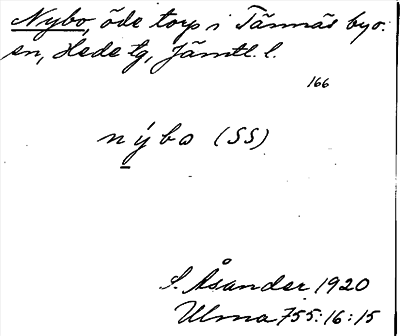 Nybo, öde torp i Tännäs byo.
en, Hede tg, Jämtl. l.
166
nýbo (SS)
S. Åsander 1920
Ulma 755:16:15